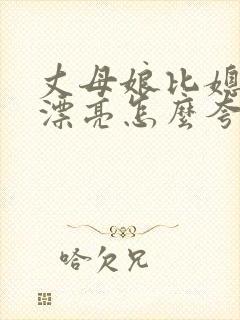 丈母娘比媳
漂亮怎麼夸
哈欠兄